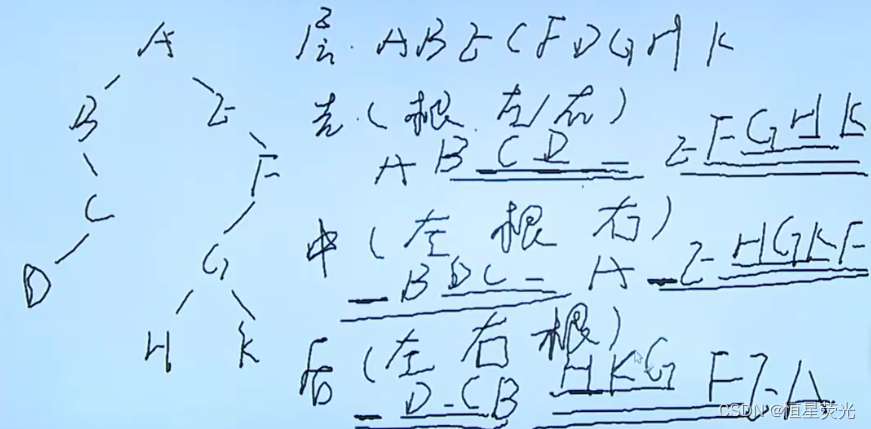 A
B E
C F
D G
H K
层. A B E C F D G H K
先 (根 左 右)
A B C D E F G H K
中 (左 根 右)
B D C A E H G K F
后 (左 右 根)
D C B H K G F E A
CSDN @恒星荧光